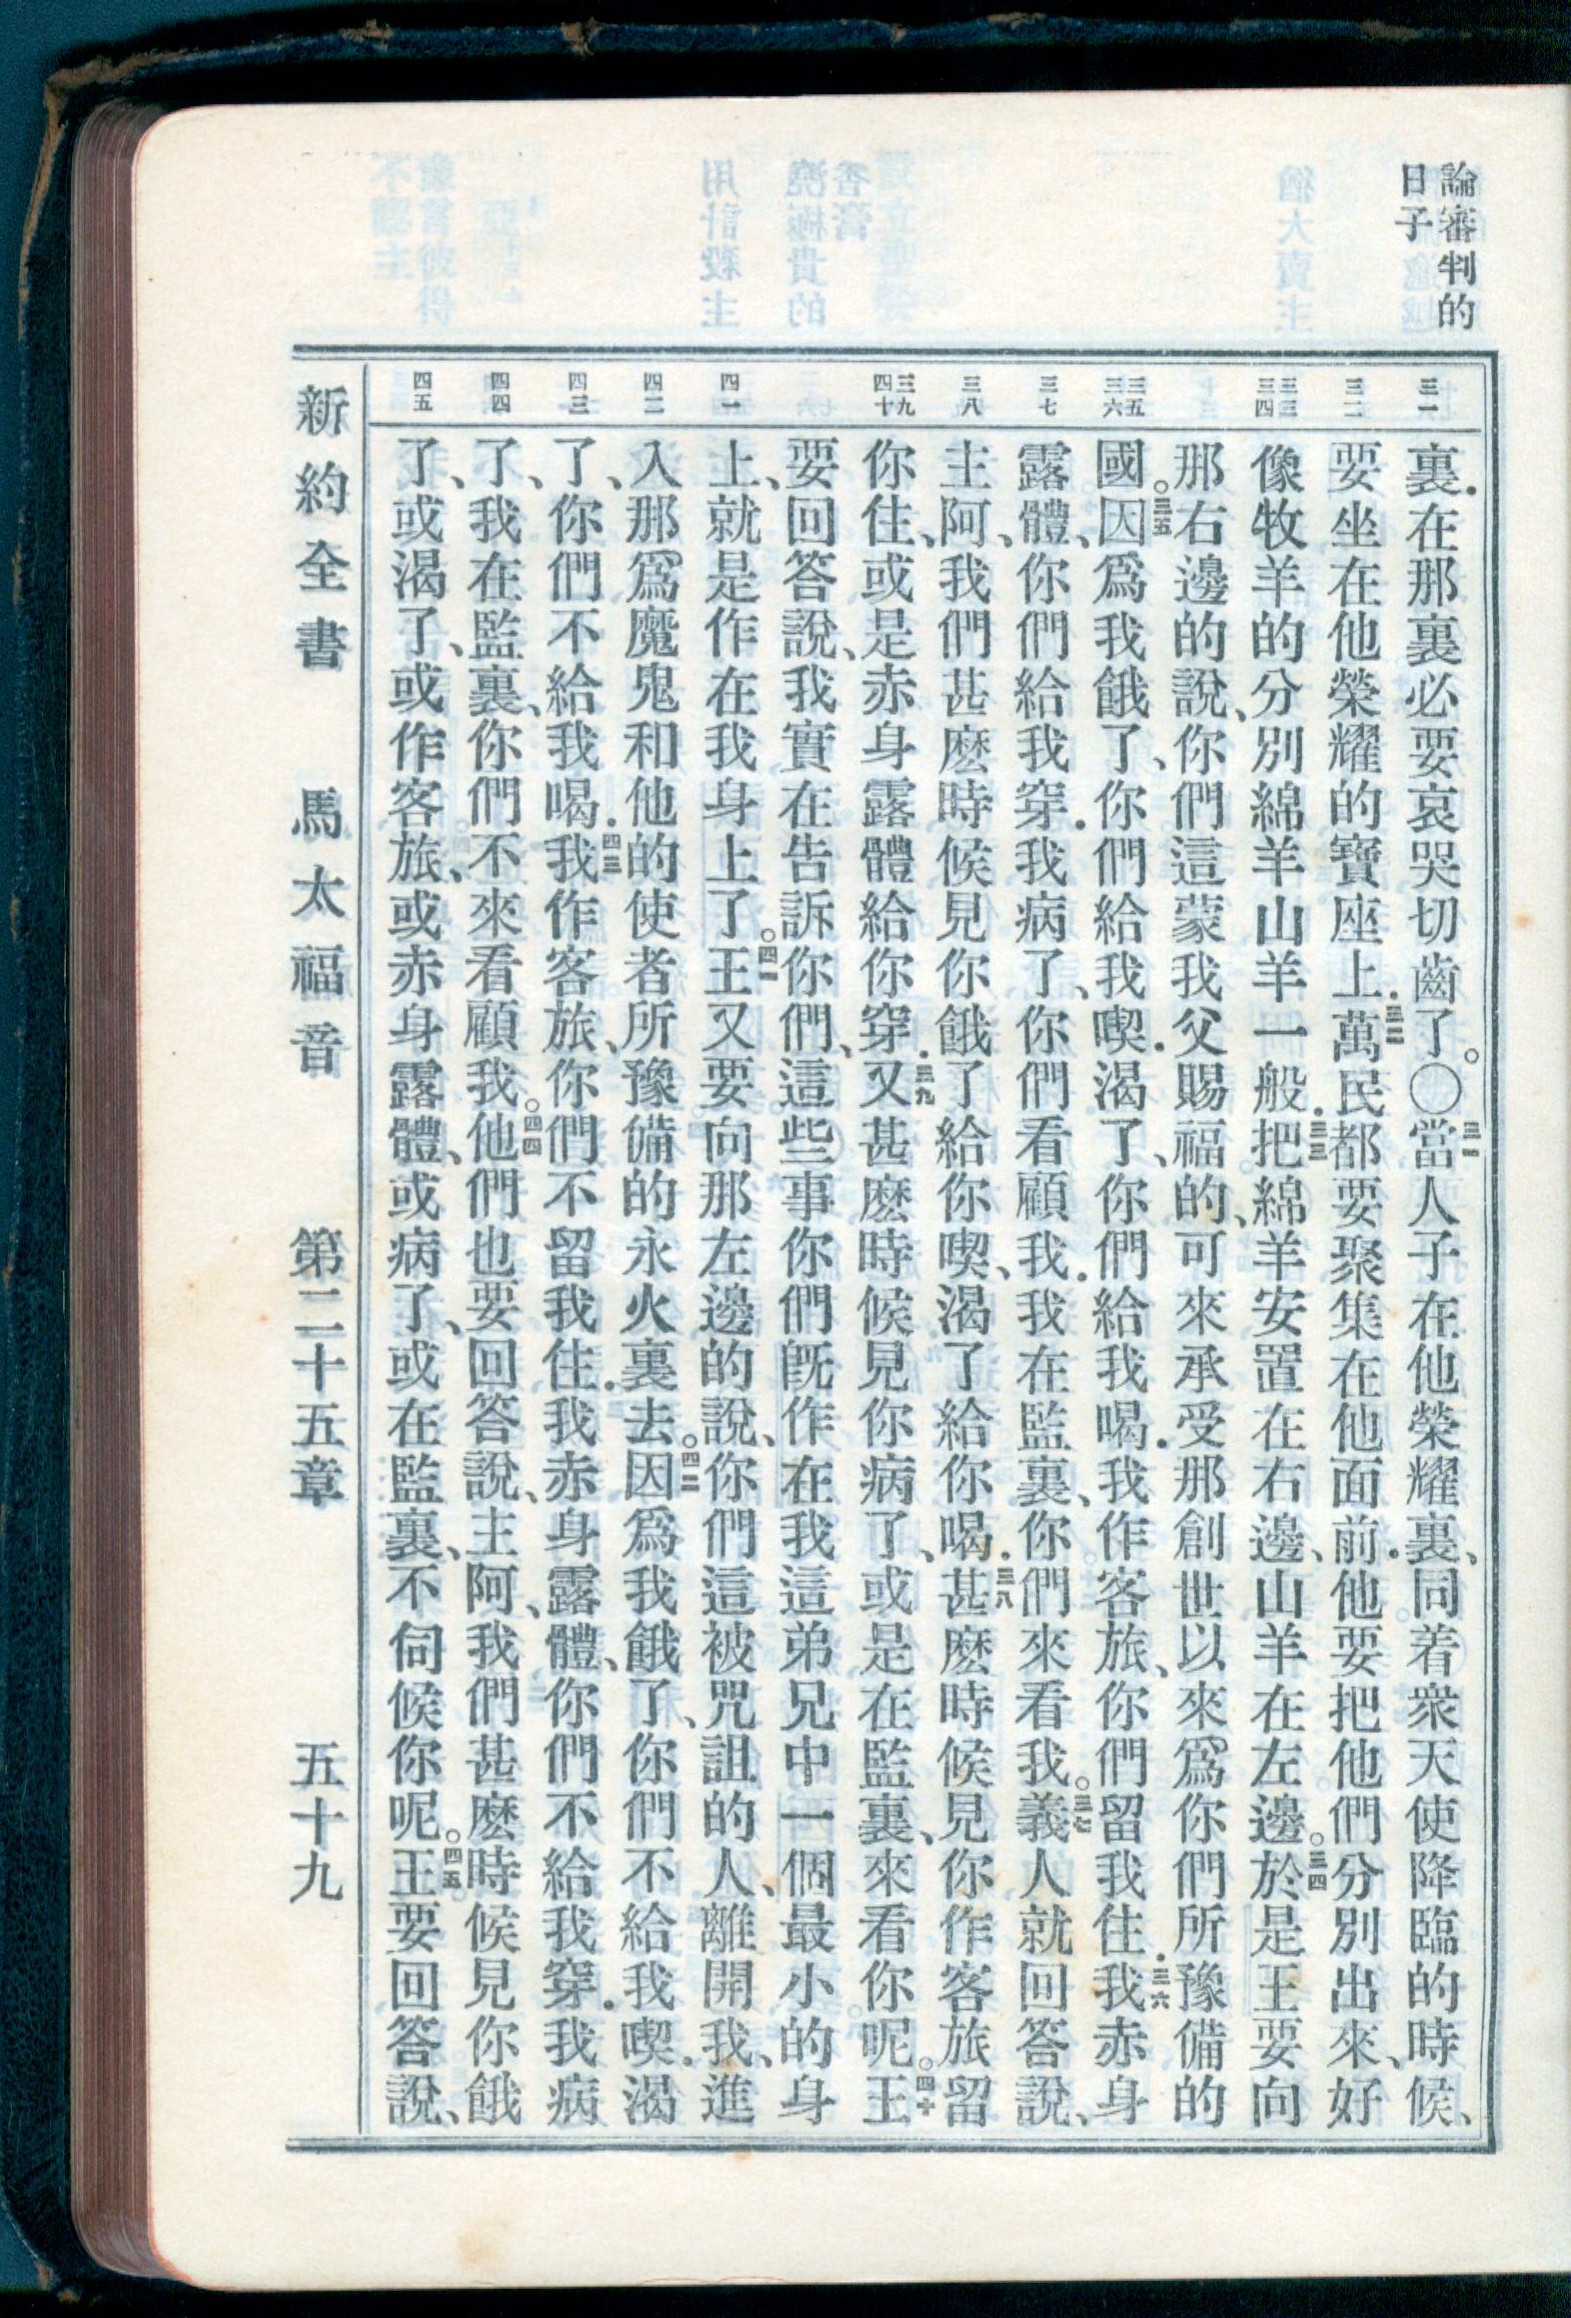 論審判的
日子
三一
三二
三三
三四
三五
三六
三七
三八
三九
四十
四一
四二
四三
四四
四五
裏．在那裏必要哀哭切齒了。〇三一當人子在他榮耀裏、同着衆天使降臨的時候、
要坐在他榮耀的寶座上．三二萬民都要聚集在他面前．他要把他們分別出來、好
像牧羊的分別綿羊山羊一般．三三把綿羊安置在右邊、山羊在左邊。三四於是王要向
那右邊的說、你們這蒙我父賜福的、可來承受那創世以來爲你們所豫備的
國。三五因爲我餓了、你們給我喫．渴了、你們給我喝．我作客旅、你們留我住．三六我赤身
露體、你們給我穿．我病了、你們看顧我．我在監裏、你們來看我。三七義人就回答說、
主阿、我們甚麼時候見你餓了給你喫、渴了給你喝．三八甚麼時候見你作客旅留
你住、或是赤身露體給你穿．三九又甚麼時候見你病了、或是在監裏、來看你呢。四十王
要回答說、我實在告訴你們、這些事你們旣作在我這弟兄中一個最小的身
上、就是作在我身上了。四一王又要向那左邊的說、你們這被咒詛的人、離開我、進
入那爲魔鬼和他的使者所豫備的永火裏去。四二因爲我餓了、你們不給我喫．渴
了、你們不給我喝．四三我作客旅、你們不留我住．我赤身露體、你們不給我穿．我病
了、我在監裏、你們不來看顧我。四四他們也要回答說、主阿、我們甚麼時候見你餓
了、或渴了、或作客旅、或赤身露體、或病了、或在監裏、不伺候你呢。四五王要回答說、
新約全書　馬太福音　第二十五章　五十九